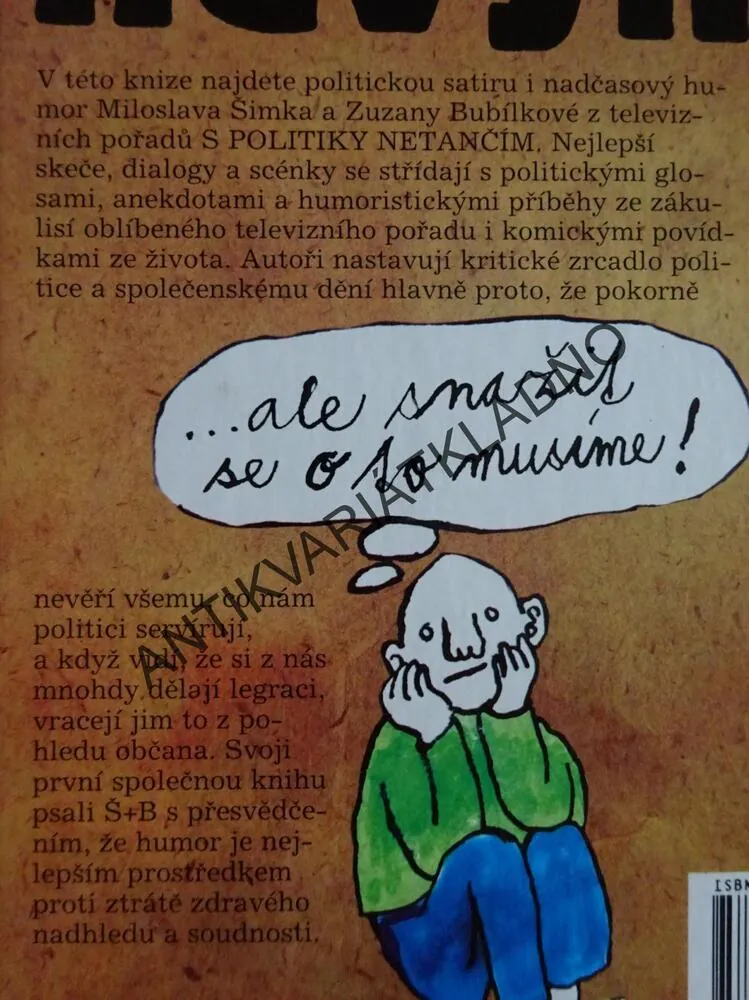 V této knize najdete politickou satiru i nadčasový hu-
mor Miloslava Šimka a Zuzany Bubílkové z televiz-
ních pořadů S POLITIKY NETANČÍM. Nejlepší
skeče, dialogy a scénky se střídají s politickými glo-
sami, anekdotami a humoristickými příběhy ze záku-
lisí oblíbeného televizního pořadu i komickými povíd-
kami ze života. Autoři nastavují kritické zrcadlo poli-
tice a společenskému dění hlavně proto, že pokorně
...ale snažit
se o to musíme!
nevěří všemu, co nám
politici servírují,
a když vidí, že si z nás
mnohdy dělají legraci,
vracejí jim to z po-
hledu občana. Svoji
první společnou knihu
psali Š+B s přesvědče-
ním, že humor je nej-
lepším prostředkem
proti ztrátě zdravého
nadhledu a soudnosti.
ISBN
ANTIKVARIATKLADNO